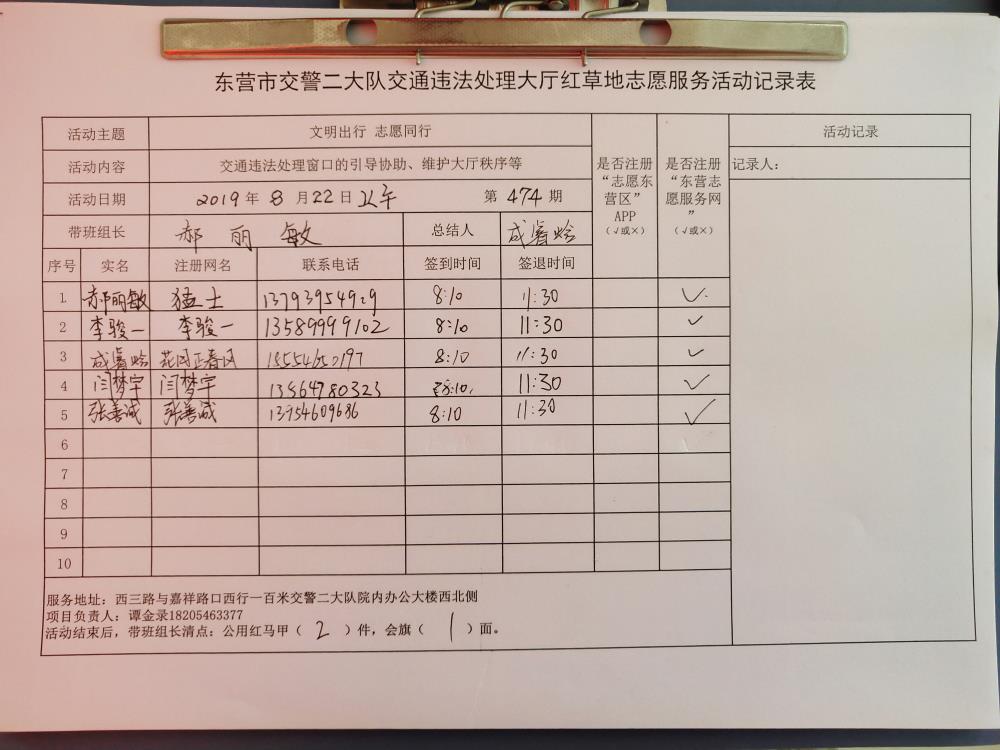 东营市交警二大队交通违法处理大厅红草地志愿服务活动记录表
活动主题 文明出行 志愿同行
活动内容 交通违法处理窗口的引导协助、维护大厅秩序等
活动日期 2019年8月22日上午 第474期
带班组长 郝丽敏 总结人 成睿
是否注册“志愿东营区”APP（√或×）
是否注册“东营志愿服务网”（√或×）
活动记录
记录人：
序号 实名 注册网名 联系电话 签到时间 签退时间
1 郝丽敏 猛士 13793954929 8:10 11:30 √
2 李骏一 李骏一 13589999102 8:10 11:30 √
3 成睿 8:10 11:30 √
4 闫梦宇 闫梦宇 13864780323 8:10 11:30 √
5 张善诚 张善诚 13754609686 8:10 11:30 √
6
7
8
9
10
服务地址：西三路与嘉祥路口西行一百米交警二大队院内办公大楼西北侧
项目负责人：谭金录18205463377
活动结束后，带班组长清点：公用红马甲（2）件，会旗（1）面。